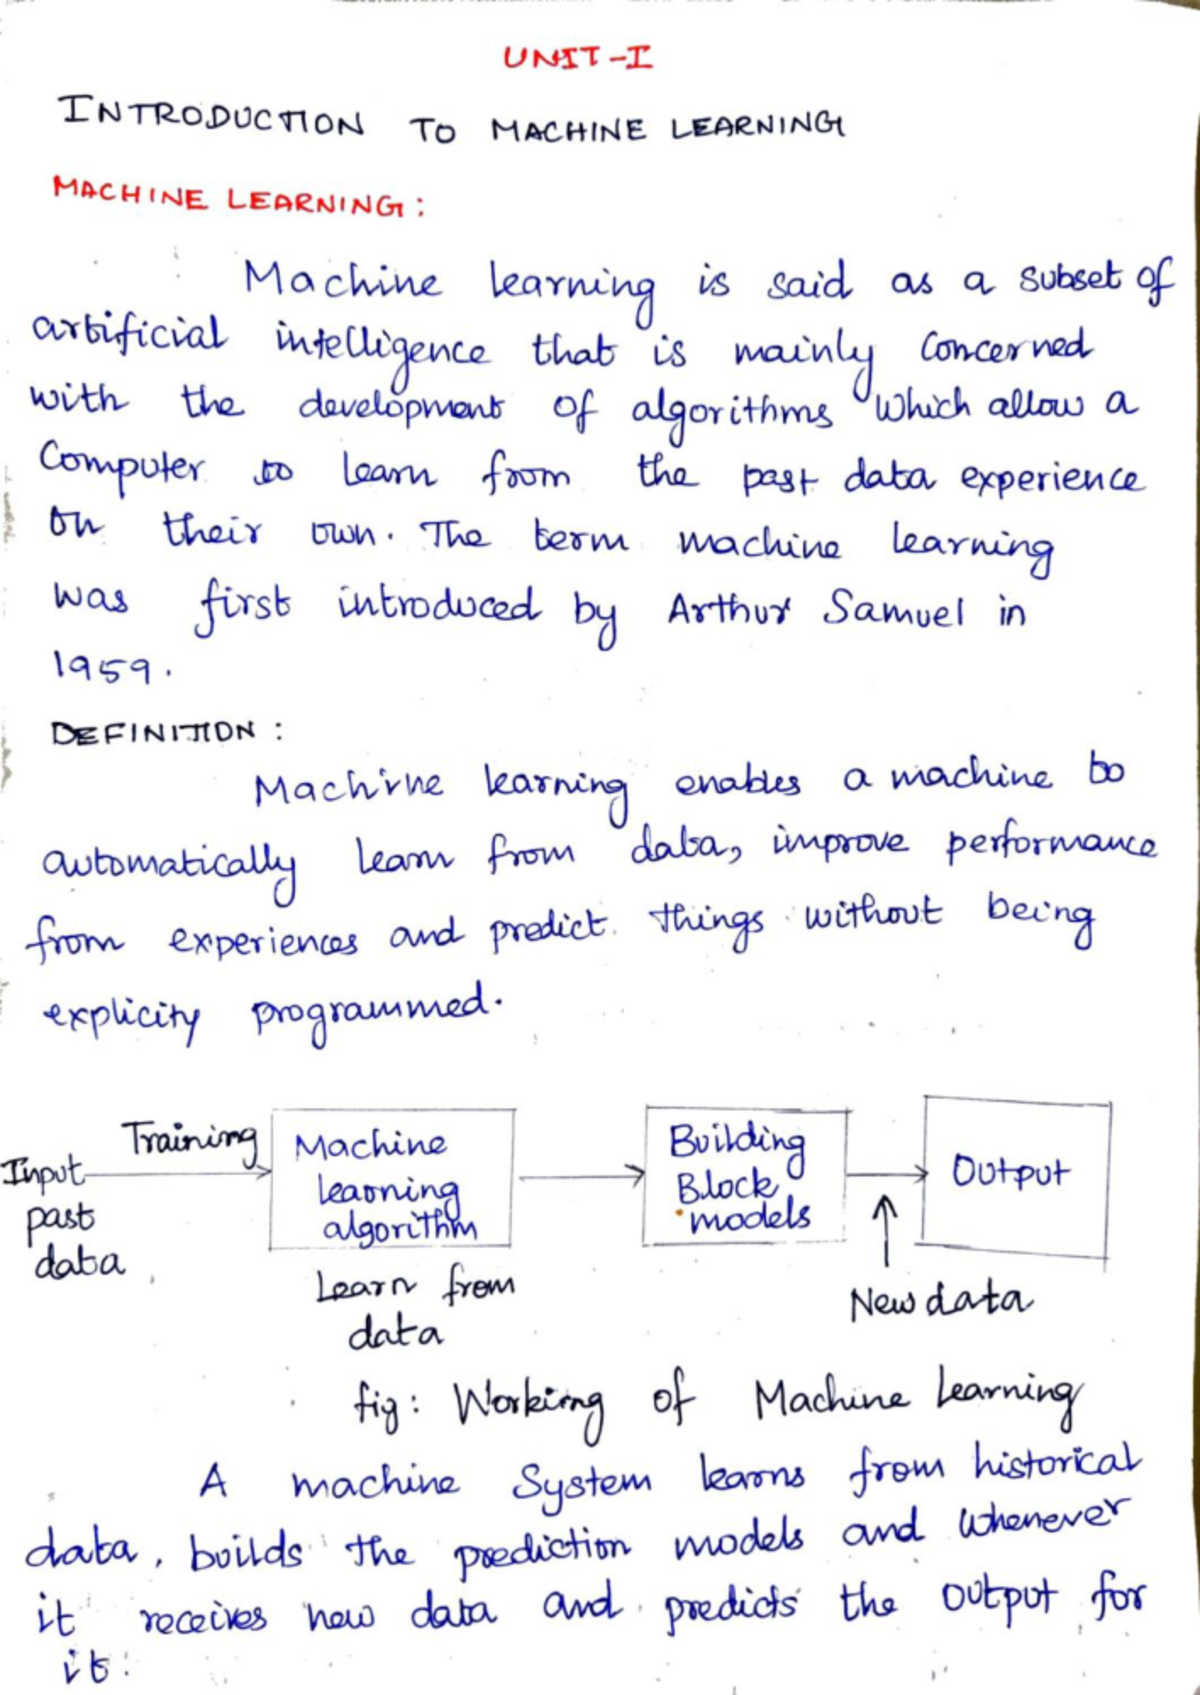 UNIT-I
INTRODUCTION TO MACHINE LEARNING
MACHINE LEARNING:
Machine learning is said as a subset of
artificial intelligence that is mainly concerned
with the development of algorithms which allow a
Computer to learn from the past data experience
on their own. The term machine learning
was first introduced by Arthur Samuel in
1959.
DEFINITION:
Machine learning enables a machine to
automatically learn from data, improve performance
from experiences and predict things without being
explicity programmed.
Training
Input
past
data
Machine
learning
algorithm
Learn from
data
Building
Block
models
Output
New data
fig: Working of Machine Learning
A machine System learns from historical
data, builds the prediction models and whenever
it receives new data and predicts the output for
it.